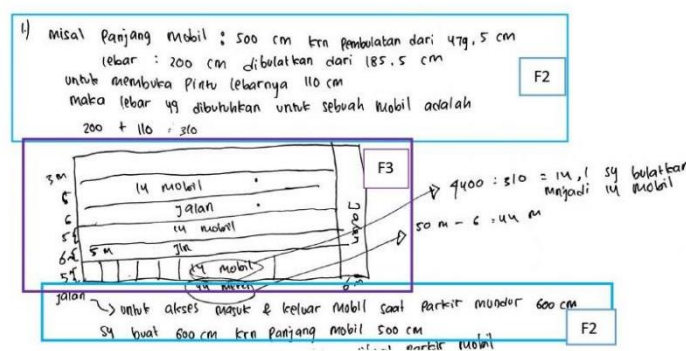 1.) misal Panjang mobil : 500 cm krn pembulatan dari 479,5 cm
lebar : 200 cm dibulatkan dari 185,5 cm
untuk membuka Pintu lebarnya 110 cm
maka lebar yg dibutuhkan untuk sebuah mobil adalah
200 + 110 = 310
F2
F3
3m
5
14 mobil
6
Jalan
5
14 mobil
6
5 m
Jln
5
14 mobil
44 meter
Jalan
4400 : 310 = 14,1 sy bulatkan
menjadi 14 mobil
50 m - 6 = 44 m
Jalan
untuk akses masuk & keluar mobil saat parkir mundur 600 cm
sy buat 600 cm krn panjang mobil 500 cm
F2
parkir mobil